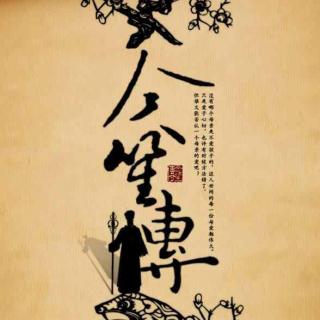 今
笙
傳
没有哪个母亲是不爱孩子的，这人世间的每一份母爱都伟大，
只是爱子心切，也许有时候方法错了，
但谁又能否认一个母亲的爱呢？